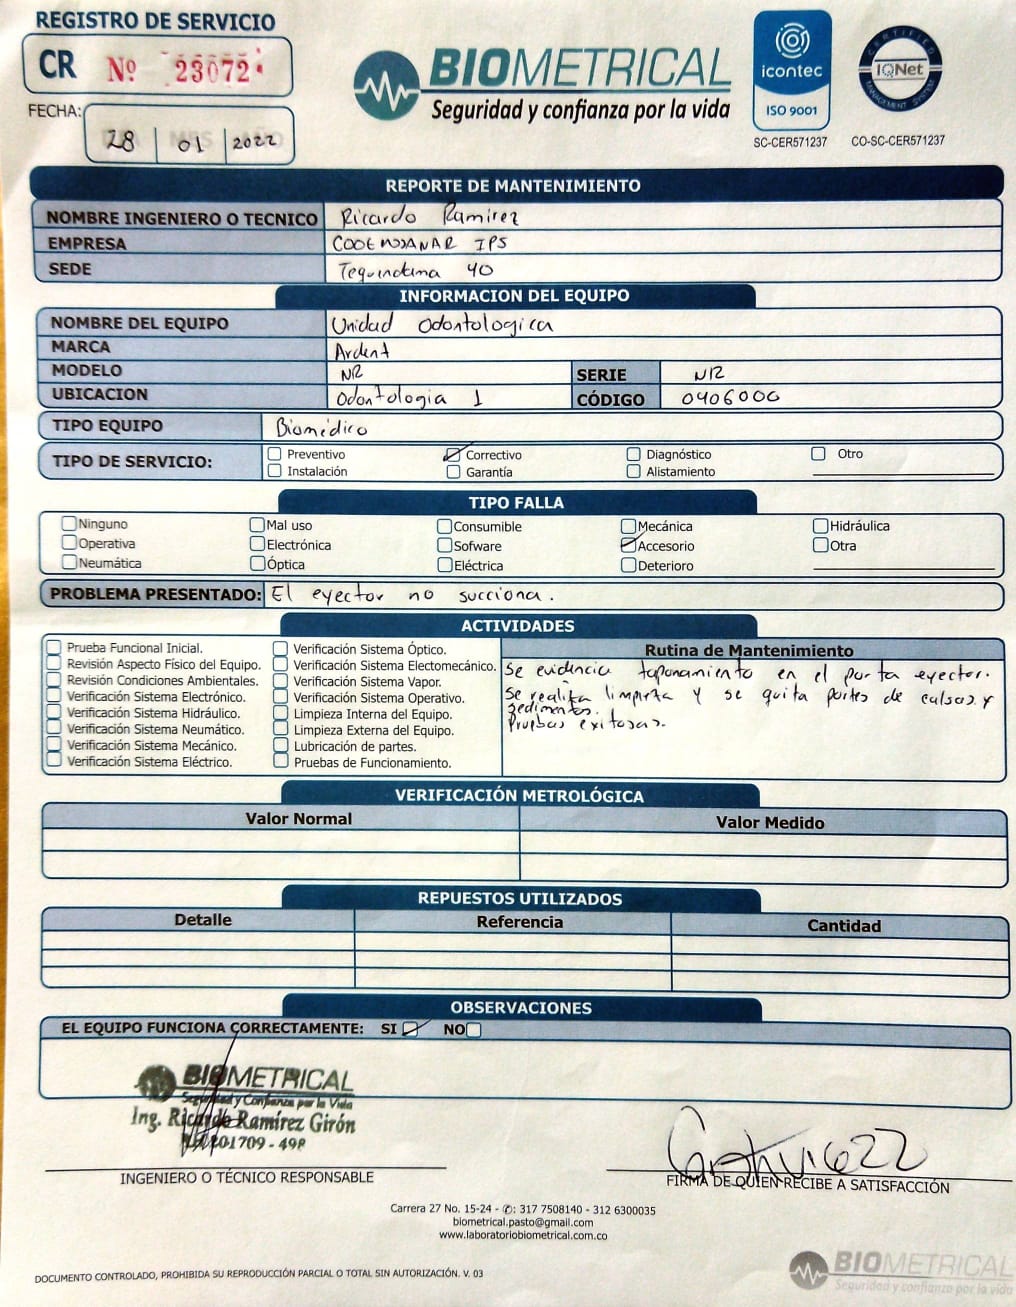 REGISTRO DE SERVICIO
CR Nº 23072
FECHA: 28 01 2022
BIOMETRICAL
Seguridad y confianza por la vida
icontec
ISO 9001
SC-CER571237
CERTIFIED
IQNet
MANAGEMENT SYSTEM
CO-SC-CER571237
REPORTE DE MANTENIMIENTO
NOMBRE INGENIERO O TECNICO Ricardo Ramirez
EMPRESA IPS
SEDE Tequendama 40
INFORMACION DEL EQUIPO
NOMBRE DEL EQUIPO Unidad Odontologica
MARCA Ardent
MODELO NR SERIE NR
UBICACION Odontologia 1 CÓDIGO 0406000
TIPO EQUIPO Biomédico
TIPO DE SERVICIO: Preventivo Correctivo Diagnóstico Otro
Instalación Garantía Alistamiento
TIPO FALLA
Ninguno Mal uso Consumible Mecánica Hidráulica
Operativa Electrónica Sofware Accesorio Otra
Neumática Óptica Eléctrica Deterioro
PROBLEMA PRESENTADO: El eyector no succiona.
ACTIVIDADES
Prueba Funcional Inicial.
Revisión Aspecto Físico del Equipo.
Revisión Condiciones Ambientales.
Verificación Sistema Electrónico.
Verificación Sistema Hidráulico.
Verificación Sistema Neumático.
Verificación Sistema Mecánico.
Verificación Sistema Eléctrico.
Verificación Sistema Óptico.
Verificación Sistema Electomecánico.
Verificación Sistema Vapor.
Verificación Sistema Operativo.
Limpieza Interna del Equipo.
Limpieza Externa del Equipo.
Lubricación de partes.
Pruebas de Funcionamiento.
Rutina de Mantenimiento
Se evidencia taponamiento en el porta eyector.
Se realiza limpieza y se quita partes de calsas y
sedimentos.
Pruebas exitosas.
VERIFICACIÓN METROLÓGICA
Valor Normal Valor Medido
REPUESTOS UTILIZADOS
Detalle Referencia Cantidad
OBSERVACIONES
EL EQUIPO FUNCIONA CORRECTAMENTE: SI NO
BIOMETRICAL
Seguridad y Confianza por la Vida
Ing. Ricardo Ramírez Girón
201709 - 49R
INGENIERO O TÉCNICO RESPONSABLE
FIRMA DE QUIEN RECIBE A SATISFACCIÓN
Carrera 27 No. 15-24 - ✆: 317 7508140 - 312 6300035
biometrical.pasto@gmail.com
www.laboratoriobiometrical.com.co
DOCUMENTO CONTROLADO, PROHIBIDA SU REPRODUCCIÓN PARCIAL O TOTAL SIN AUTORIZACIÓN. V. 03
BIOMETRICAL
Seguridad y confianza por la vida